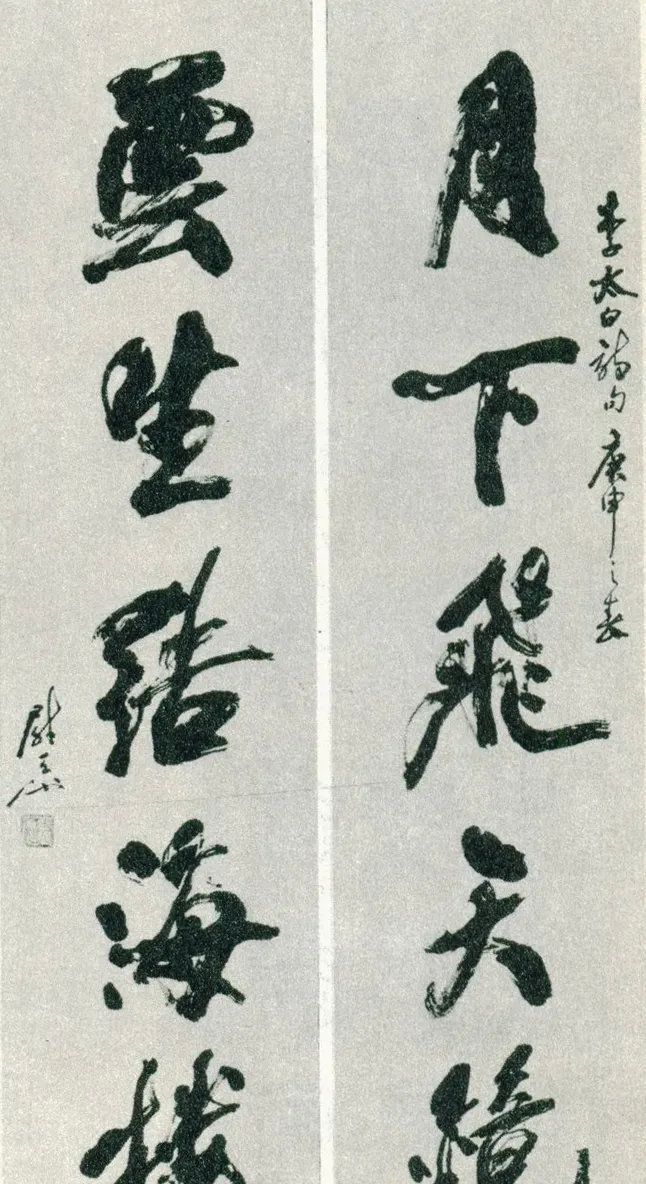 李太白詩句 庚申之春
月下飛天鏡
雲生結海樓
尉天池